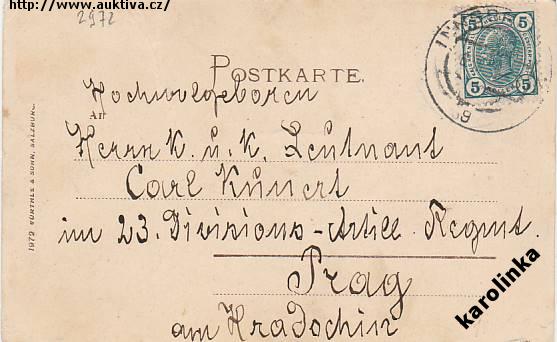 http://www.auktiva.cz/
2972
POSTKARTE.
5 5
5 5
Hochwolgeboren
An
Herrn K. u. k. Leutnant
Carl Kunert
im 23. Divisions-Artill. Regmt.
Prag
am Hradschin
1979 WÜRTHLE & SOHN, SALZBURG.
karolinka